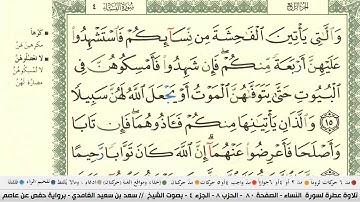 الجزء الرابع
سورة النساء
٤
وَٱلَّٰتِي يَأْتِينَ ٱلْفَٰحِشَةَ مِن نِّسَآئِكُمْ فَٱسْتَشْهِدُوا۟
عَلَيْهِنَّ أَرْبَعَةً مِّنكُمْ ۖ فَإِن شَهِدُوا۟ فَأَمْسِكُوهُنَّ فِي
ٱلْبُيُوتِ حَتَّىٰ يَتَوَفَّىٰهُنَّ ٱلْمَوْتُ أَوْ يَجْعَلَ ٱللَّهُ لَهُنَّ سَبِيلًا
١٥ وَٱلَّذَانِ يَأْتِيَٰنِهَا مِنكُمْ فَـَٔاذُوهُمَا ۖ فَإِن تَابَا
وَأَصْلَحَا فَأَعْرِضُوا۟ عَنْهُمَآ ۗ إِنَّ ٱللَّهَ كَانَ تَوَّابًا رَّحِيمًا
كرها
مكرهين لهن
لا تعضلوهن
لا تمسكوهن
مضارة لهن
تلاوة عطرة لسورة النساء - الصفحة ٨٠ - الحزب ٨ - الجزء ٤ - بصوت الشيخ // سعد بن سعيد الغامدي - برواية حفص عن عاصم